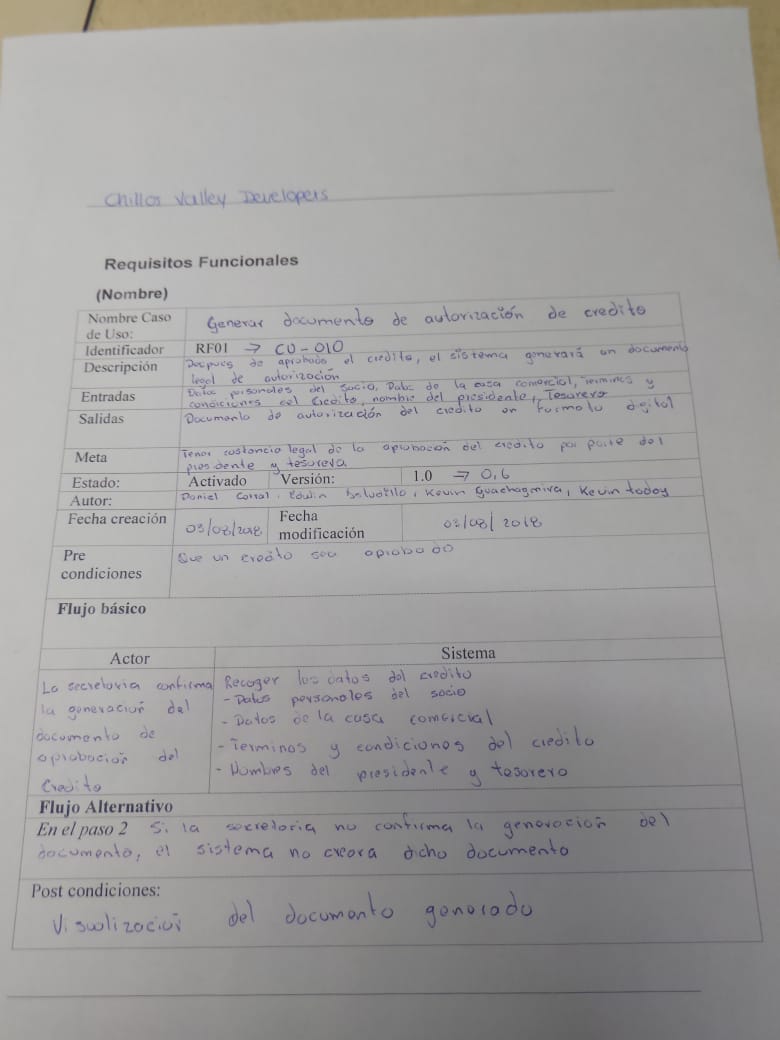 Chillos Valley Developers
Requisitos Funcionales
(Nombre)
Nombre Caso de Uso: Generar documento de autorización de credito
Identificador RF01 → CU-010
Descripción Despues de aprobado el credito, el sistema generará un documento
legal de autorización
Entradas Datos personales del socio, Datos de la casa comercial, terminos y
condiciones del credito, nombre del presidente, Tesorero
Salidas Documento de autorización del credito en formato digital
Meta Tener costancia legal de la aprobación del credito por parte del
presidente y tesorera
Estado: Activado Versión: 1.0 → 0,6
Autor: Daniel Corral, Edwin Kevin Guachagmira, Kevin
Fecha creación 03/08/2018 Fecha modificación 03/08/2018
Pre condiciones Que un credito sea aprobado
Flujo básico
Actor Sistema
La secretaria confirma
la generación del
documento de
aprobación del
Credito
Recoger los datos del credito
- Datos personales del socio
- Datos de la casa comercial
- Terminos y condiciones del credito
- Nombres del presidente y tesorero
Flujo Alternativo
En el paso 2 Si la secretaria no confirma la generación del
documento, el sistema no creara dicho documento
Post condiciones:
Visulización del documento generado